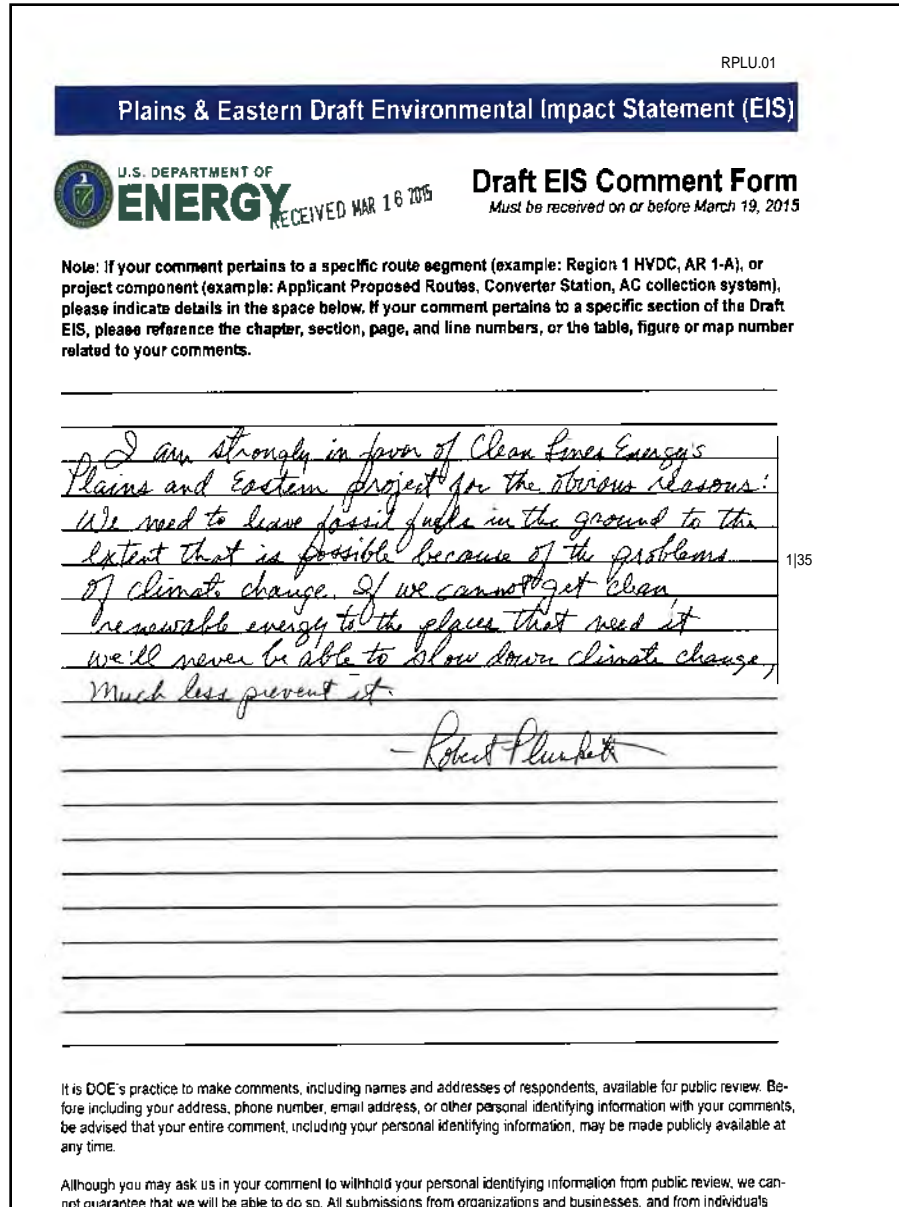 RPLU.01
Plains & Eastern Draft Environmental Impact Statement (EIS)
U.S. DEPARTMENT OF
ENERGY
RECEIVED MAR 16 2015
Draft EIS Comment Form
Must be received on or before March 19, 2015
Note: If your comment pertains to a specific route segment (example: Region 1 HVDC, AR 1-A), or
project component (example: Applicant Proposed Routes, Converter Station, AC collection system),
please indicate details in the space below. If your comment pertains to a specific section of the Draft
EIS, please reference the chapter, section, page, and line numbers, or the table, figure or map number
related to your comments.
I am strongly in favor of Clean Lines Energy's
Plains and Eastern project for the obvious reasons:
We need to leave fossil fuels in the ground to the
extent that is possible because of the problems
1|35
of climate change. If we cannot get clean,
renewable energy to the places that need it
we'll never be able to slow down climate change,
much less prevent it.
- Robert Plunkett
It is DOE's practice to make comments, including names and addresses of respondents, available for public review. Be-
fore including your address, phone number, email address, or other personal identifying information with your comments,
be advised that your entire comment, including your personal identifying information, may be made publicly available at
any time.
Although you may ask us in your comment to withhold your personal identifying information from public review, we can-
not guarantee that we will be able to do so. All submissions from organizations and businesses, and from individuals